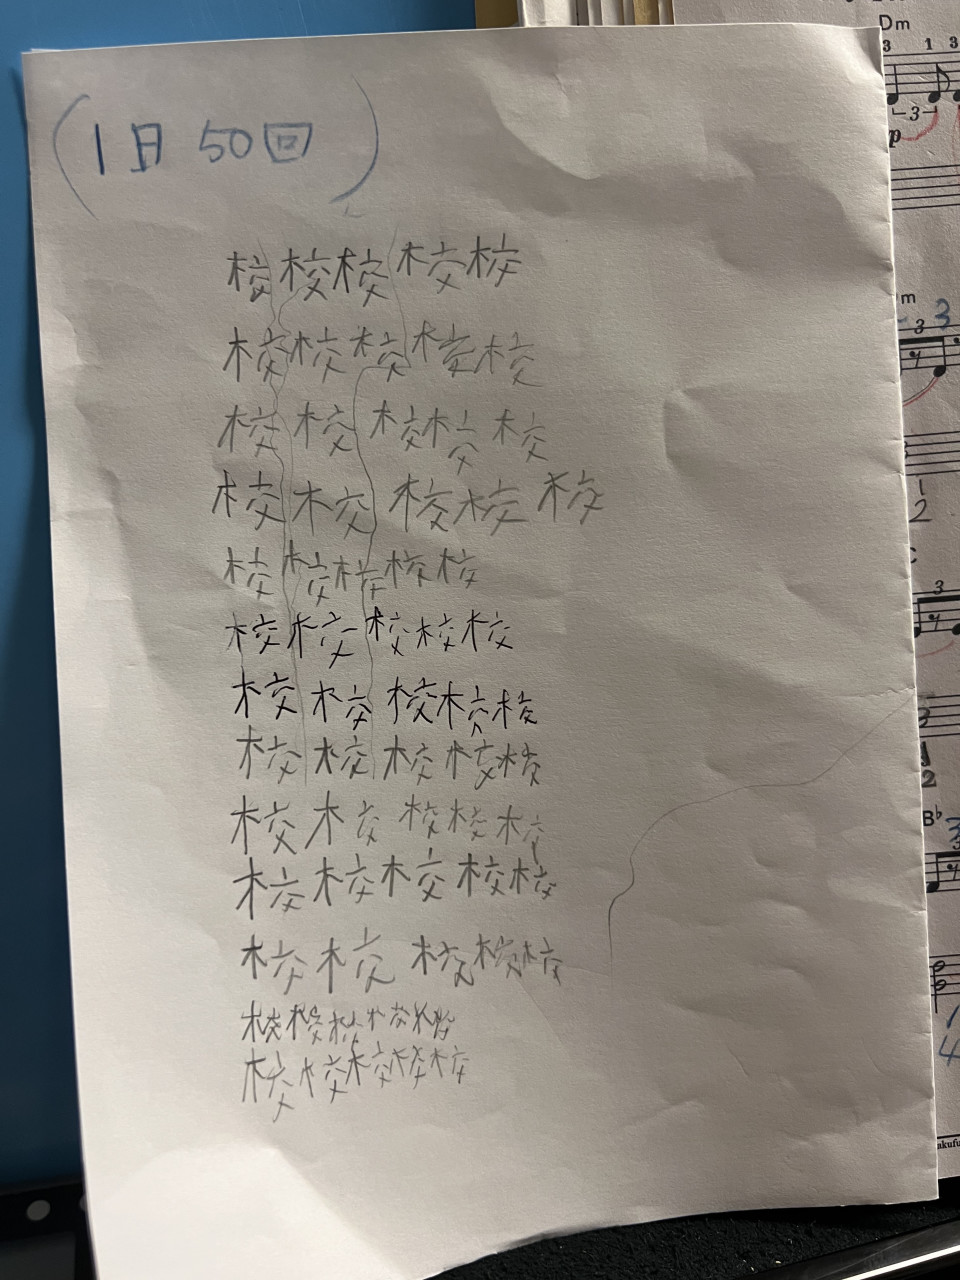 (1日 50回)
校校校校校
校校校校校
校校校校校
校校校校校
校校校校校
校校校校校
校校校校校
校校校校校
校校校校校
校校校校校
校校校校校
校校校校校
校校校校校
Dm
3 1 3
3
p
m
3
3
1
2
C
3
2
B♭
3
1
4